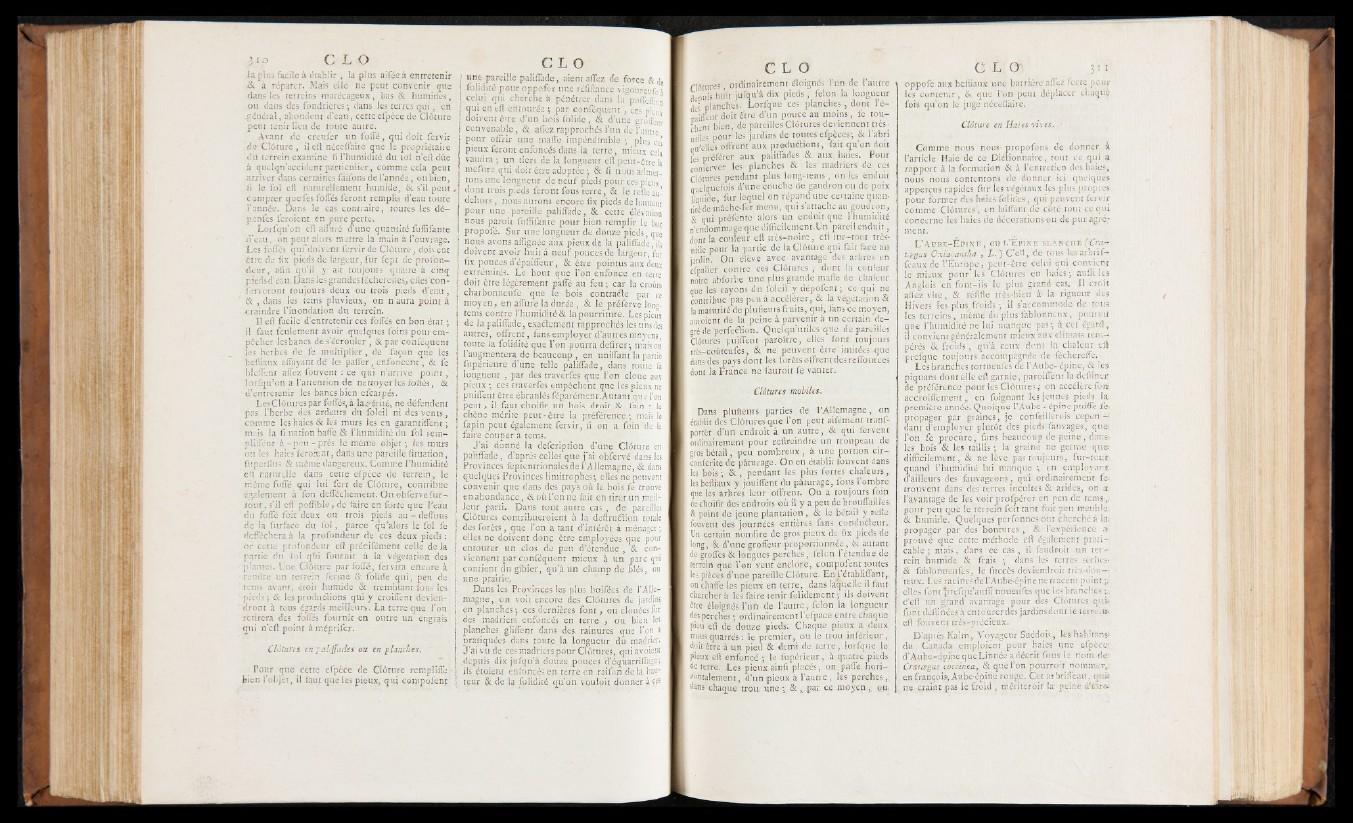 310 C L O
la plus facile à établir, la plus aiſée à entretenir
& à réparer. Mais elle ne peut convenir que
dans les terreins marécageux, bas & humides,
ou dans des fondrières; dans les terres qui, en
général, abondent d'eau, cette eſpèce de Clôture
peut tenir lieu de toute autre.
Avant de creuſer un foſſé, qui doit ſervir
de Clôture, il eſt néceſſaire que le propriétaire
du terrein examine ſi l'humidité du ſol n'eſt dûe
à quelqu'accident particulier, comme cela peut
arriver dans certaines ſaiſons de l'année, ou bien,
ſi le ſol eſt naturellement humide, & s'il peut
compter que ſes foſſés ſeront remplis d'eau toute
l'année. Dans le cas contraire, toutes les dé-
penſes ſeroient en pure perte.
Lorſqu'on eſt aſſuré d'une quantité ſuffiſante
d'eau, on peut alors mettre la main à l'ouvrage.
Les foſſés qui doivent ſervir de Clôture, doivent
être de ſix pieds de largeur, ſur ſept de profon-
deur, afin qu'il y ait toujours quatre à cinq
pieds d'eau. Dans les grandes ſéchereſſes, elles con-
ſerveront toujours deux ou trois pieds d'eau,
&, dans les tems pluvieux, on n'aura point à
craindre l'inondation du terrein.
Il eſt facile d'entretenir ces foſſés en bon état;
il faut ſeulement avoir quelques ſoins pour em-
pêcher les bancs de s'écrouler, & par conſéquent
les herbes de ſe multiplier, de façon que les
beſtiaux eſſayant de les paſſer, enfoncent, & ſe
bleſſent aſſez ſouvent: ce qui n'arrive point,
lorſqu'on a l'attention de nettoyer les foſſés, &
d'entretenir les bancs bien eſcarpés.
Les Clôtures par foſſés, à la vérité, ne défendent
pas l'herbe des ardeurs du ſoleil ni des vents,
comme les haies & les murs les en garantiſſent;
mais la ſituation baſſe & l'humidité du ſol rem-
pliſſent à-peu-près le même objet; les murs
ou les haies ſeroient, dans une pareille ſituation,
ſuperflus & même dangereux. Comme l'humidité
eſt naturelle dans cette eſpèce de terrein, le
même foſſé qui lui ſert de Clôture, contribue
également à ſon deſſéchement. On obſerve ſur-
tout, s'il eſt poſſible, de faire en ſorte que l'eau
du foſſé ſoit deux ou trois pieds au-deſſous
de la ſurface du ſol, parce qu'alors le ſol ſe
deſſéchera à la profondeur de ces deux pieds:
or cette profondeur eſt préciſément celle de la
partie du ſol qui fournit à la végétation des
plantes. Une Clôture par foſſé, ſervira encore à
rendre un terrein ferme & ſolide qui, peu de
tems avant, étoit humide & tremblant ſous les
pieds; & les productions qui y croiſſent devien-
dront à tous égards meilleurs. La terre que l'on
retirera des foſſés fournit en outre un engrais
qui n'eſt point à mépriſer.
Clôtures en paliſſades ou en planches.
Pour que cette eſpèce de Clôture rempliſſe
bien l'objet, il faut que les pieux, qui compoſent
C L O
une pareille paliſſade, aient aſſez de force & de
ſolidité pour oppoſer une réſiſtance vigoureuſe à
celui qui cherche à pénétrer dans la poſſeſſion
qui en eſt entourée; par conſéquent, ces pieux
doivent être d'un bois ſolide, & d'une groſſeur
convenable, & aſſez rapprochés l'un de l'autre,
pour offrir une maſſe impénétrable; plus ces
pieux ſeront enfoncés dans la terre, mieux cela
vaudra; un tiers de la longueur eſt peut-être la
meſure qui doit être adoptée; & ſi nous admet-
tons une longueur de neuf pieds pour ces pieux,
dont trois pieds ſeront ſous terre, & le reſte au-
dehors, nous aurons encore ſix pieds de hauteur
pour une pareille paliſſade, & cette élévation
nous paroît ſuffiſante pour bien remplir le but
propoſé. Sur une longueur de douze pieds, que
nous avons aſſignée aux pieux de la paliſſade, ils
doivent avoir huit à neuf pouces de largeur, ſur
ſix pouces d'épaiſſeur, & être pointus aux deux
extrémités. Le bout que l'on enfonce en terre
doit être légèrement paſſé au feu; car la croûte
charbonneuſe que le bois contracte par ce
moyen, en aſſure la durée, & le préſerve long-
tems contre l'humidité & la pourriture. Les pieux
de la paliſſade, exactement rapprochés les uns des
autres, offrent, ſans employer d'autres moyens,
toute la ſolidité que l'on pourra deſirer; mais on
l'augmentera de beaucoup, en uniſſant la partie
ſupérieure d'une telle paliſſade, dans toute ſa
longueur, par des traverſes que l'on cloue aux
pieux; ces traverſes empêchent que les pieux ne
puiſſent être ébranlés ſéparément. Autant que l'on
peut, il faut choiſir un bois droit & ſain: le
chêne mérite peut-être la préférence; mais le
ſapin peut également ſervir, ſi on a ſoin de le
faire couper à tems.
J'ai donné la deſcription d'une Clôture en
paliſſade, d'après celles que j'ai obſervé dans les
Provinces ſeptentrionales de l'Allemagne, & dans
quelques Provinces limitrophes; elles ne peuvent
convenir que dans des pays où le bois ſe trouve
en abondance, & où l'on ne ſait en tirer un meil-
leur parti. Dans tout autre cas, de pareilles
Clôtures contribueroient à la deſtruction totale
des forêts, que l'on a tant d'intérêt à ménager;
elles ne doivent donc être employées que pour
entourer un clos de peu d'étendue, & con-
viennent par conſéquent mieux à un parc qui
contient du gibier, qu'à un champ de blés, ou
une prairie.
Dans les Provinces les plus boiſées de l'Alle-
magne, on voit encore des Clôtures de jardins
en planches; ces dernières ſont, ou clouées ſur
des madriers enfoncés en terre, ou bien les
planches gliſſent dans des rainures que l'on a
pratiquées dans toute la longueur du madrier.
J'ai vû de ces madriers pour Clôtures, qui avoient
depuis dix juſqu'à douze pouces d'équarriſſage;
ils étoient enfoncés en terre en raiſon de la hau-
teur & de la ſolidité qu'on vouloit donner à ces
C L O
Clôtures, ordinairement éloignés l'un de l'autre
depuis huit juſqu'à dix pieds, ſelon la longueur
des planches. Lorſque ces planches, dont l'é-
paiſſeur doit être d'un pouce au moins, ſe tou-
chent bien, de pareilles Clôtures deviennent très-
utiles pour les jardins de toutes eſpèces; & l'abri
qu'elles offrent aux productions, fait qu'on doit
les préférer aux paliſſades & aux haies. Pour
conſerver les planches & les madriers de ces
Clôtures pendant plus long-tems, on les enduit
quelquefois d'une couche de gaudron ou de poix
liquide, ſur lequel on répand une certaine quan-
tité de mâche-fer menu, qui s'attache au goudron,
& qui préſente alors un enduit que l'humidité
n'endommage que difficilement. Un pareil enduit,
dont la couleur eſt très-noire, eſt ſur-tout très-
utile pour la partie de la Clôture qui fait face au
jardin. On élève avec avantage des arbres en
eſpalier contre ces Clôtures, dont la couleur
noire abſorbe une plus grande maſſe de chaleur
que les rayons du ſoleil y dépoſent; ce qui ne
contribue pas peu à accélérer, & la végétation &
la maturité de pluſieurs fruits, qui, ſans ce moyen,
auroient de la peine à parvenir à un certain de-
gré de perfection. Quelqu'utiles que de pareilles
Clôtures puiſſent paroître, elles ſont toujours
très-coûteuſes, & ne peuvent être imitées que
dans des pays dont les forêts offrent des reſſources
dont la France ne ſauroit ſe vanter.
Clôtures mobiles.
Dans pluſieurs parties de l'Allemagne, on
établit des Clôtures que l'on peut aiſément tranſ-
porter d'un endroit à un autre, & qui ſervent
ordinairement pour reſtreindre un troupeau de
gros bétail, peu nombreux, à une portion cir-
conſcrite de pâturage. On en établit ſouvent dans
les bois; &, pendant les plus fortes chaleurs,
les beſtiaux y jouiſſent du pâturage, ſous l'ombre
que les arbres leur offrent. On a toujours ſoin
de choiſir des endroits où il y a peu de brouſſailles
& point de jeune plantation, & le bétail y reſte
ſouvent des journées entières ſans conducteur.
Un certain nombre de gros pieux de ſix pieds de
long, & d'une groſſeur proportionnée, & autant
de groſſes & longues perches, ſelon l'étendue de
terrein que l'on veut enclore, compoſent toutes
les pièces d'une pareille Clôture. En l'établiſſant,
on chaſſe les pieux en terre, dans laquelle il faut
chercher à les faire tenir ſolidement; ils doivent
être éloignés l'un de l'autre, ſelon la longueur
des perches; ordinairement l'eſpace entre chaque
pieu eſt de douze pieds. Chaque pieux a deux
trous quarrés: le premier, ou le trou inférieur,
doit être à un pied & demi de terre, lorſque le
pieux eſt enfoncé; le ſupérieur, à quatre pieds
de terre. Les pieux ainſi placés, on paſſe hori-
zontalement, d'un pieux à l'autre, les perches,
dans chaque trou une; &, par ce moyen, on
C L O 311
oppoſe aux beſtiaux une barrière aſſez forte pour
les contenir, & que l'on peut déplacer chaque
fois qu'on le juge néceſſaire.
Clôture en Haies vives.
Comme nous nous propoſons de donner à
l'article Haie de ce Dictionnaire, tout ce qui a
rapport à la formation & à l'entretien des haies,
nous nous contentons de donner ici quelques
apperçus rapides ſur les végétaux les plus propres
pour former des haies ſolides, qui peuvent ſervir
comme Clôtures, en laiſſant de côté tout ce qui
concerne les haies de décorations ou de pur agré-
ment.
L'AUBE-ÉPINE, ou L'ÉPINE BLANCHE (Cra-
tægus Oxiacantha, L.) C'eſt, de tous les arbriſ-
ſeaux de l'Europe, peut-être celui qui convient
le mieux pour les Clôtures en haies; auſſi les
Anglois en font-ils le plus grand cas. Il croît
aſſez vîte, & réſiſte très-bien à la rigueur des
Hivers les plus froids; il s'accommode de tous
les terreins, même du plus ſablonneux, pourvu
que l'humidité ne lui manque pas; à cet égard,
il convient généralement mieux aux climats tem-
pérés & froids, qu'à ceux dont la chaleur eſt
preſque toujours accompagnée de ſéchereſſe.
Les branches tortueuſes de l'Aube-épine, & les
piquans dont elle eſt garnie, paroiſſent la deſtiner
de préférence pour les Clôtures; on accélère ſon
accroiſſement, en ſoignant les jeunes pieds la
première année. Quoique l'Aube-épine puiſſe ſe
propager par graines, je conſeillerois cepen-
dant d'employer plutôt des pieds ſauvages, que
l'on ſe procure, ſans beaucoup de peine, dans
les bois & les taillis; la graine ne germe que
difficilement, & ne lève pas toujours, ſur-tout
quand l'humidité lui manque; en employant
d'ailleurs des ſauvageons, qui ordinairement ſe
trouvent dans des terres incultes & arides, on a
l'avantage de les voir proſpérer en peu de tems,
pour peu que le terrein ſoit tant ſoit peu meuble
& humide. Quelques perſonnes ont cherché à la
propager par des boutures, & l'expérience a
prouvé que cette méthode eſt également prati-
cable; mais, dans ce cas, il faudroit un ter-
rein humide & frais; dans les terres ſèches
& ſablonneuſes, le ſuccès deviendroit très-dou-
teux. Les racines de l'Aube-épine ne tracent point;
elles ſont preſqu'auſſi noueuſes que les branches;
c'eſt un grand avantage pour des Clôtures qui
ſont deſtinées à entourer des jardins dont le terrein
eſt ſouvent très-précieux.
D'après Kalm, Voyageur Suédois, les habitans
du Canada emploient pour haies une eſpèce
d'Aube-épine que Linnée a décrit ſous le nom de
Cratægus coccinea, & que l'on pourroit nommer,
en françois, Aube-épine rouge. Cet arbriſſeau, qui
ne craint pas le froid, mériteroit la peine d'être